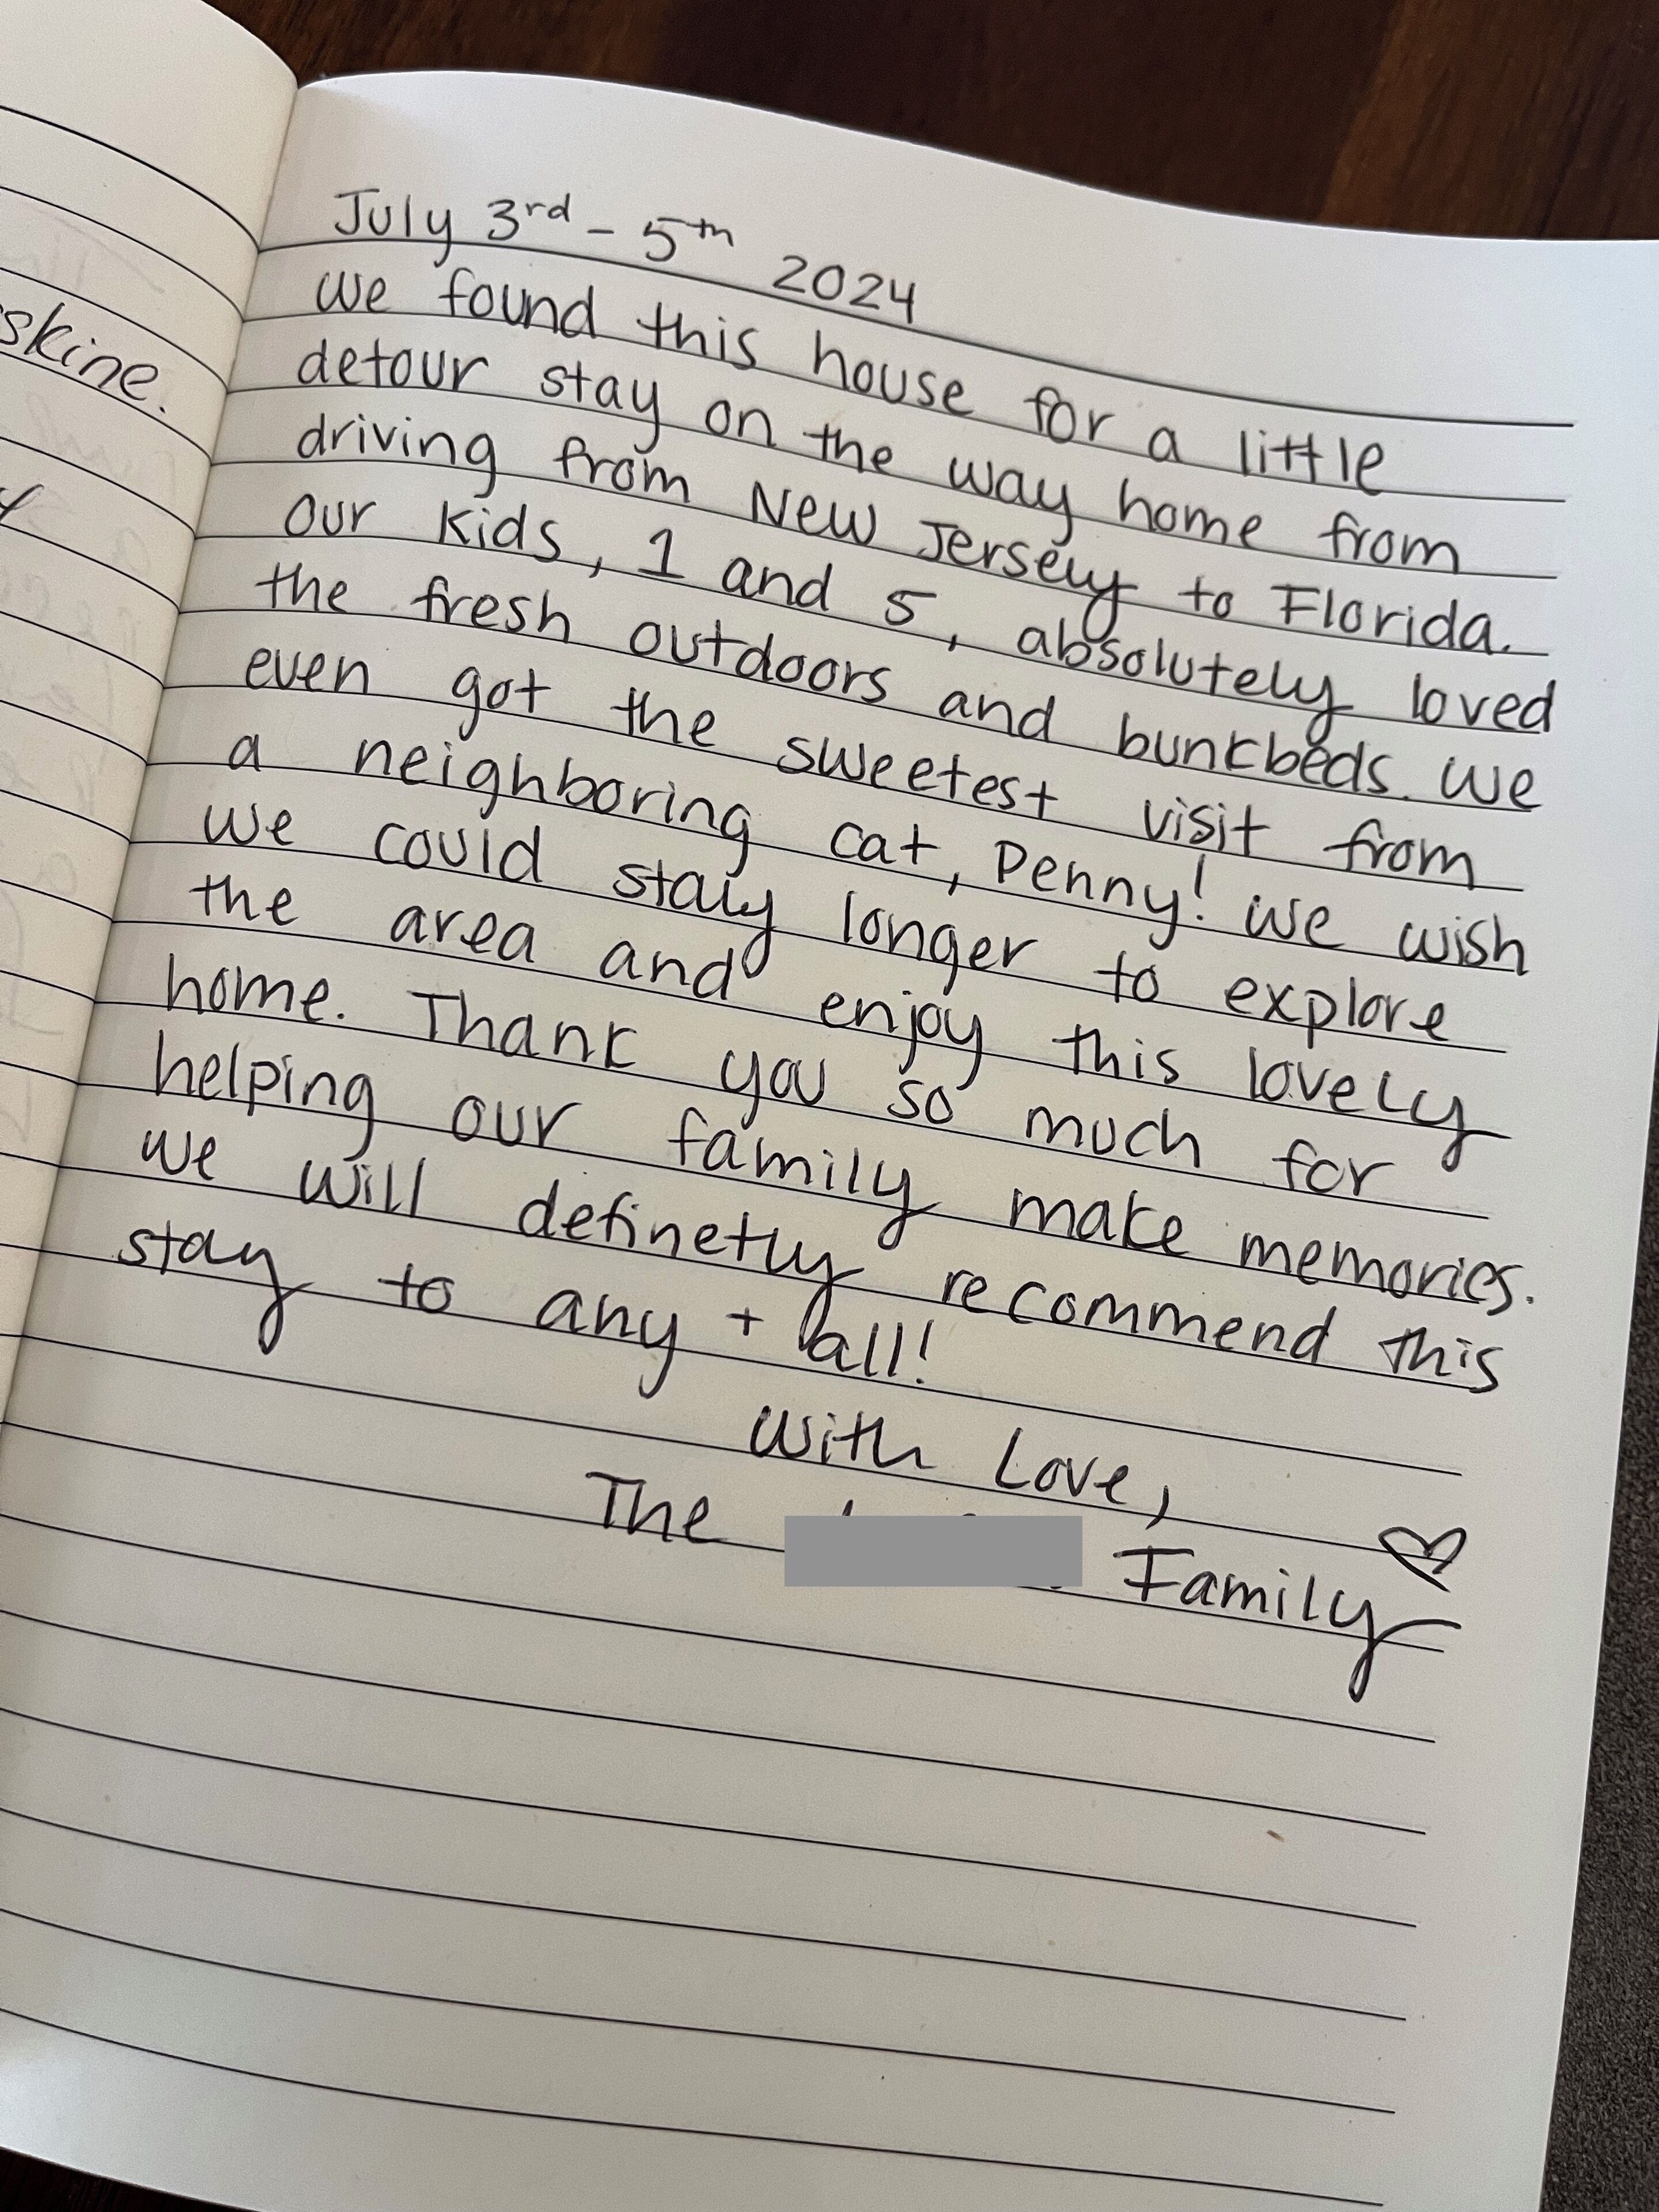 skine.
July 3rd - 5th 2024
we found this house for a little
detour stay on the way home from
driving from New Jersey to Florida.
our kids, 1 and 5, absolutely loved
the fresh outdoors and bunkbeds. we
even got the sweetest visit from
a neighboring cat, Penny! we wish
we could stay longer to explore
the area and enjoy this lovely
home. Thank you so much for
helping our family make memories.
we will definetly recommend this
stay to any + all!
with Love,
The Family